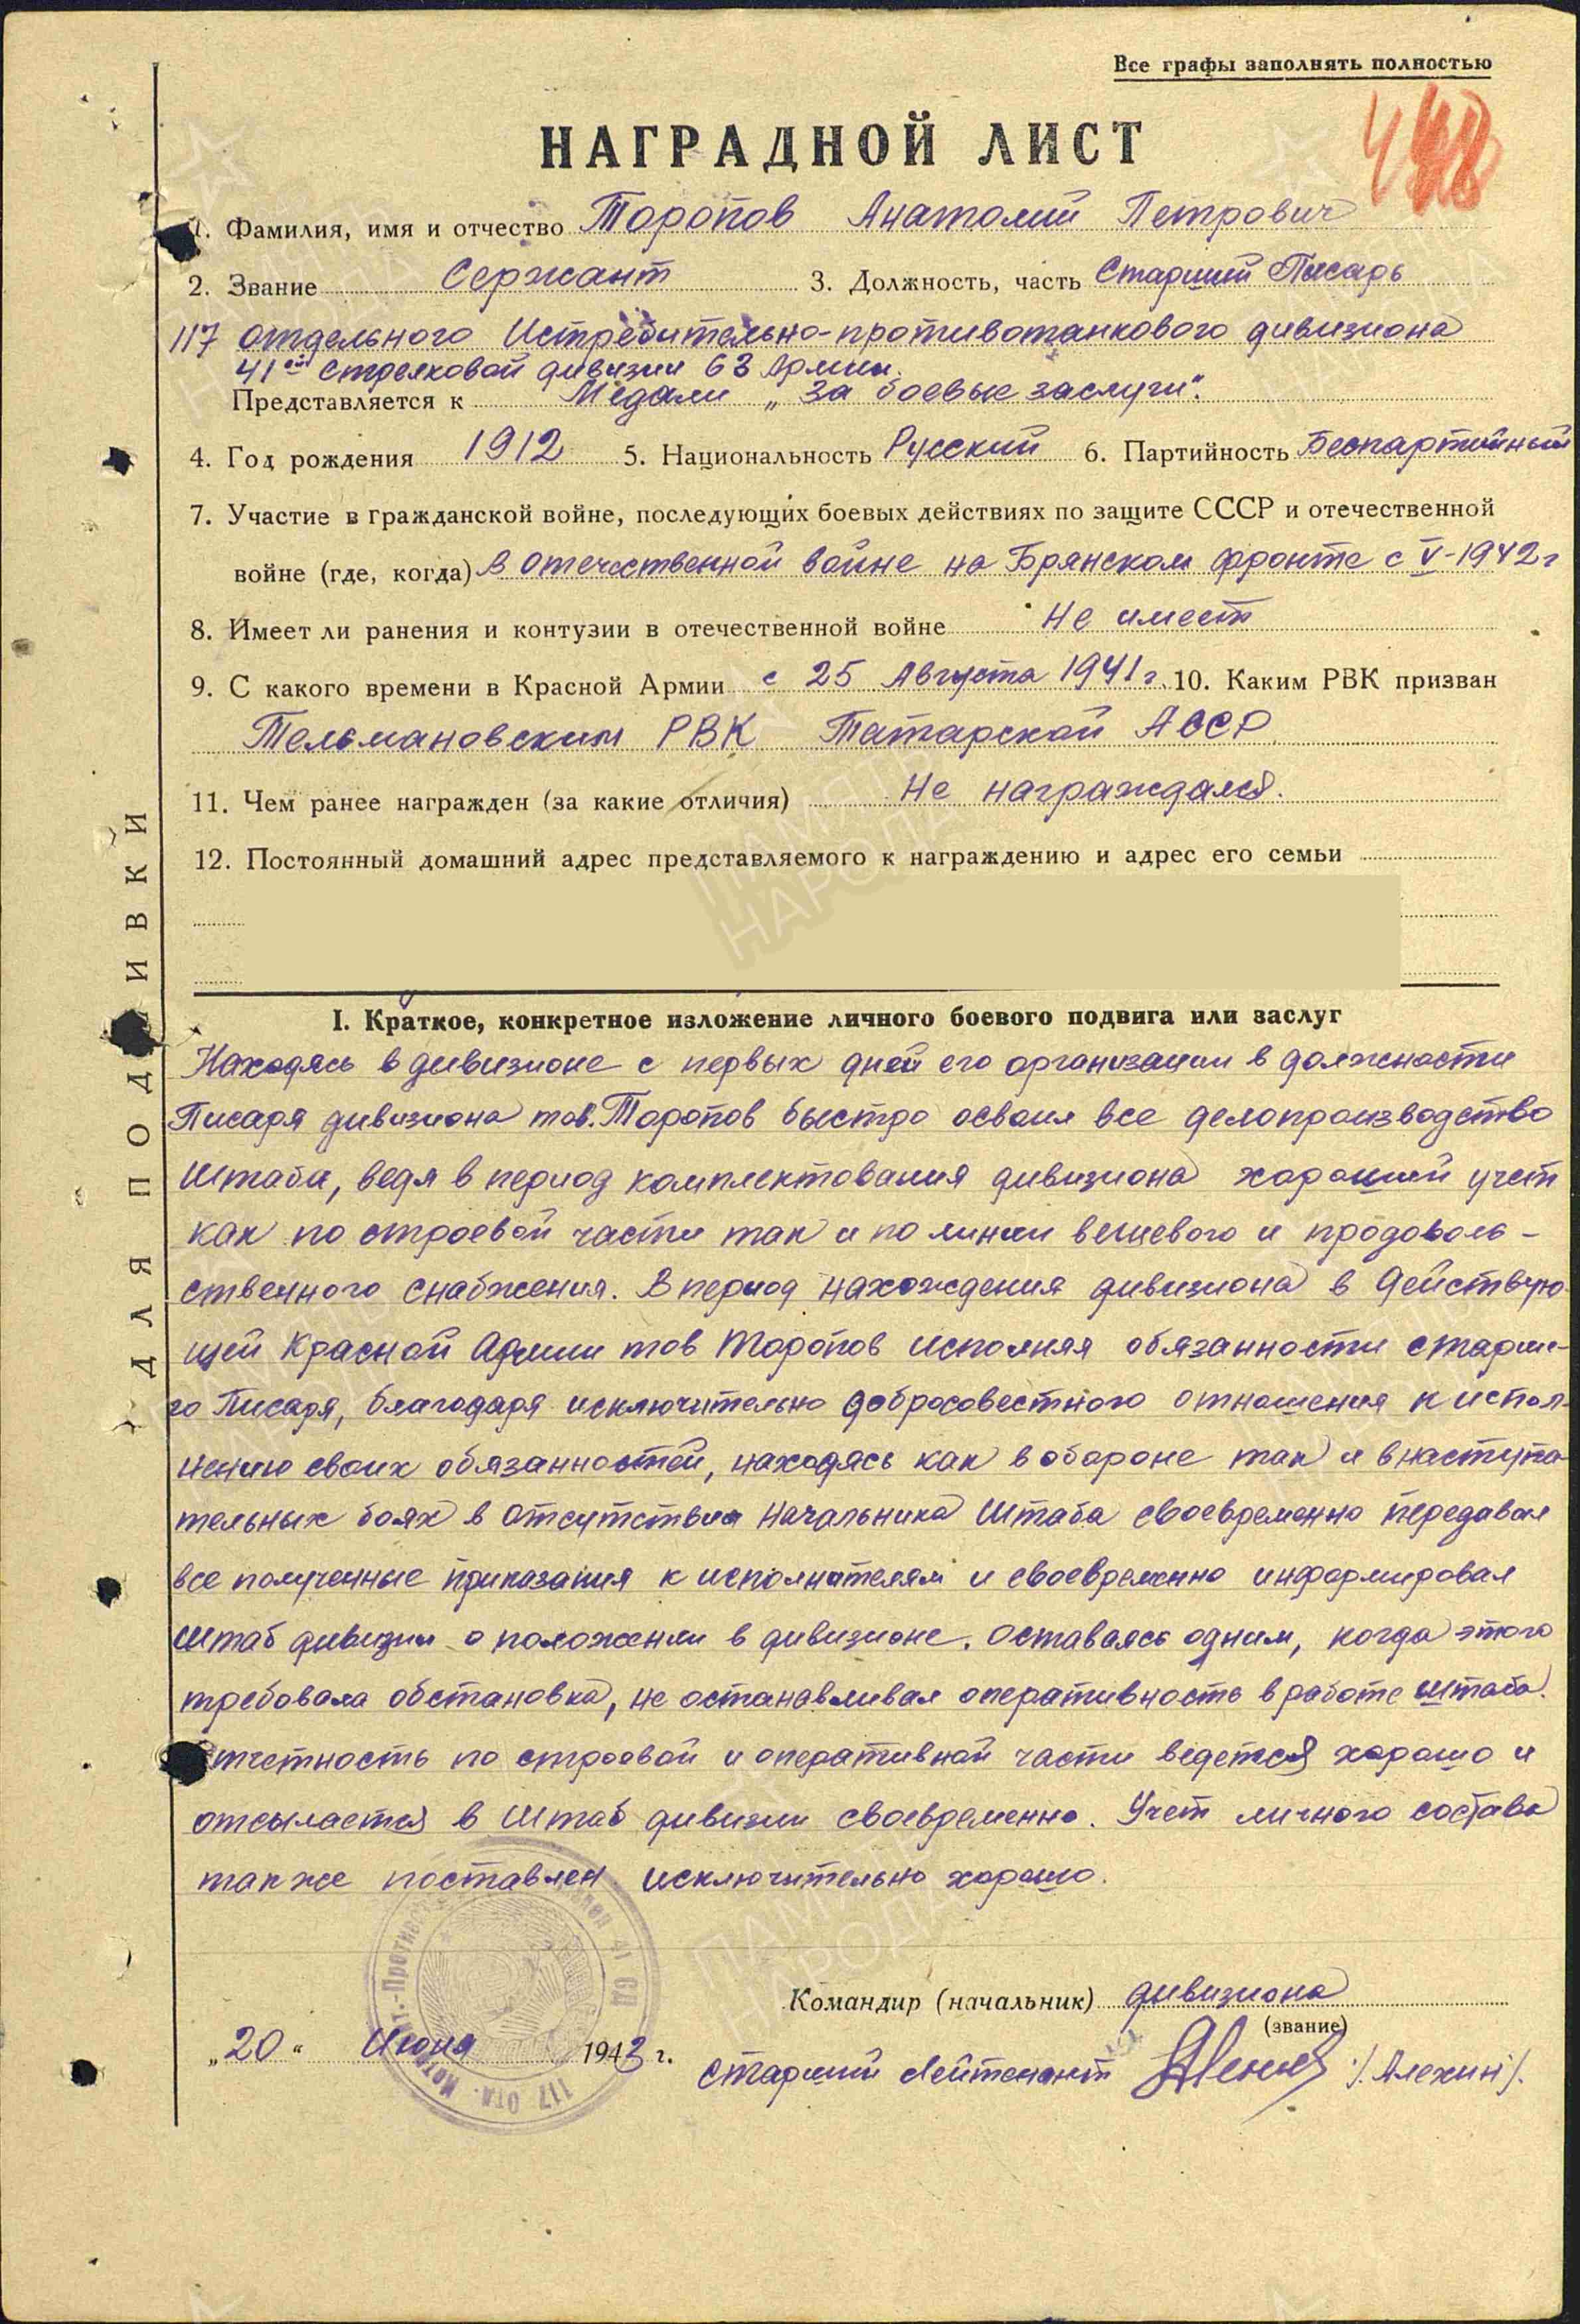 Все графы заполнять полностью
НАГРАДНОЙ ЛИСТ
1. Фамилия, имя и отчество Торопов Анатолий Петрович
2. Звание Сержант 3. Должность, часть Старший Писарь
117 отдельного Истребительно-противотанкового дивизиона
41ой стрелковой дивизии 63 Армии.
Представляется к Медали „За боевые заслуги".
4. Год рождения 1912 5. Национальность Русский 6. Партийность Беспартийный
7. Участие в гражданской войне, последующих боевых действиях по защите СССР и отечественной
войне (где, когда) В отечественной войне на Брянском фронте с V-1942г
8. Имеет ли ранения и контузии в отечественной войне Не имеет
9. С какого времени в Красной Армии с 25 Августа 1941г. 10. Каким РВК призван
Тельмановским РВК Татарской АССР
11. Чем ранее награжден (за какие отличия) Не награждался.
12. Постоянный домашний адрес представляемого к награждению и адрес его семьи
ДЛЯ ПОДШИВКИ
I. Краткое, конкретное изложение личного боевого подвига или заслуг
Находясь в дивизионе с первых дней его организации в должности
Писаря дивизиона тов. Торопов быстро освоил все делопроизводство
Штаба, ведя в период комплектования дивизиона хороший учет
как по строевой части так и по линии вещевого и продоволь-
ственного снабжения. В период нахождения дивизиона в Действую-
щей Красной Армии тов Торопов исполняя обязанности старше-
го Писаря, благодаря исключительно добросовестного отношения к испол-
нению своих обязанностей, находясь как в обороне так и в наступа-
тельных боях в отсутствии Начальника Штаба своевременно передавал
все полученные приказания к исполнителям и своевременно информировал
штаб дивизии о положении в дивизионе. Оставаясь одним, когда этого
требовала обстановка, не останавливал оперативность в работе штаба.
Отчетность по строевой и оперативной части ведется хорошо и
отсылается в Штаб дивизии своевременно. Учет личного состава
также поставлен исключительно хорошо.
Командир (начальник) дивизиона
(звание)
„20" Июня 1943 г.
старший лейтенант /Алехин/.
117 Отд. 41 СД
ПАМЯТЬ НАРОДА